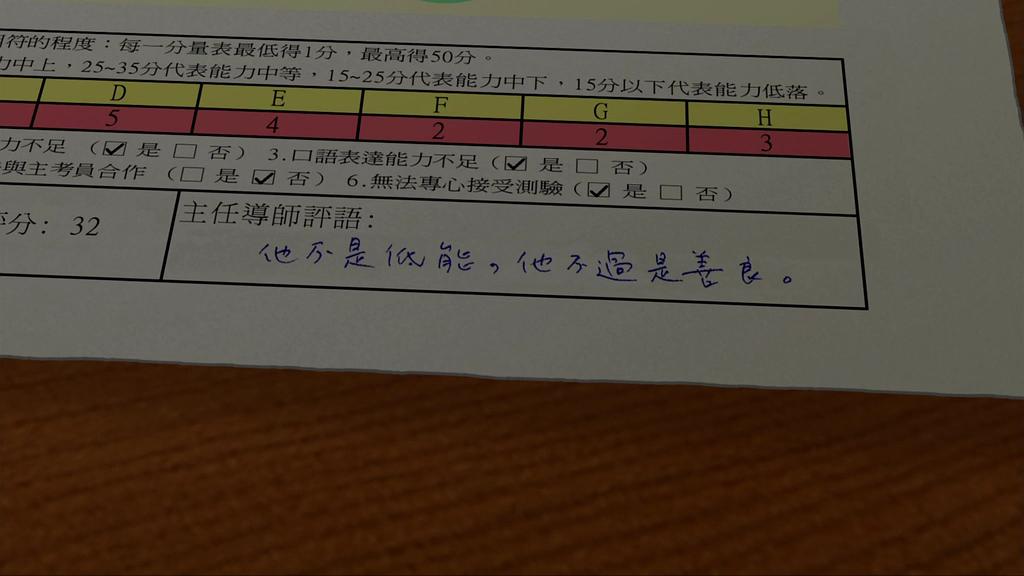 符的程度：每一分量表最低得1分，最高得50分。
力中上，25~35分代表能力中等，15~25分代表能力中下，15分以下代表能力低落。
D E F G H
5 4 2 2 3
力不足 （☑ 是 □ 否） 3.口語表達能力不足（☑ 是 □ 否）
與主考員合作 （□ 是 ☑ 否） 6.無法專心接受測驗（☑ 是 □ 否）
評分: 32
主任導師評語:
他不是低能，他不過是善良。